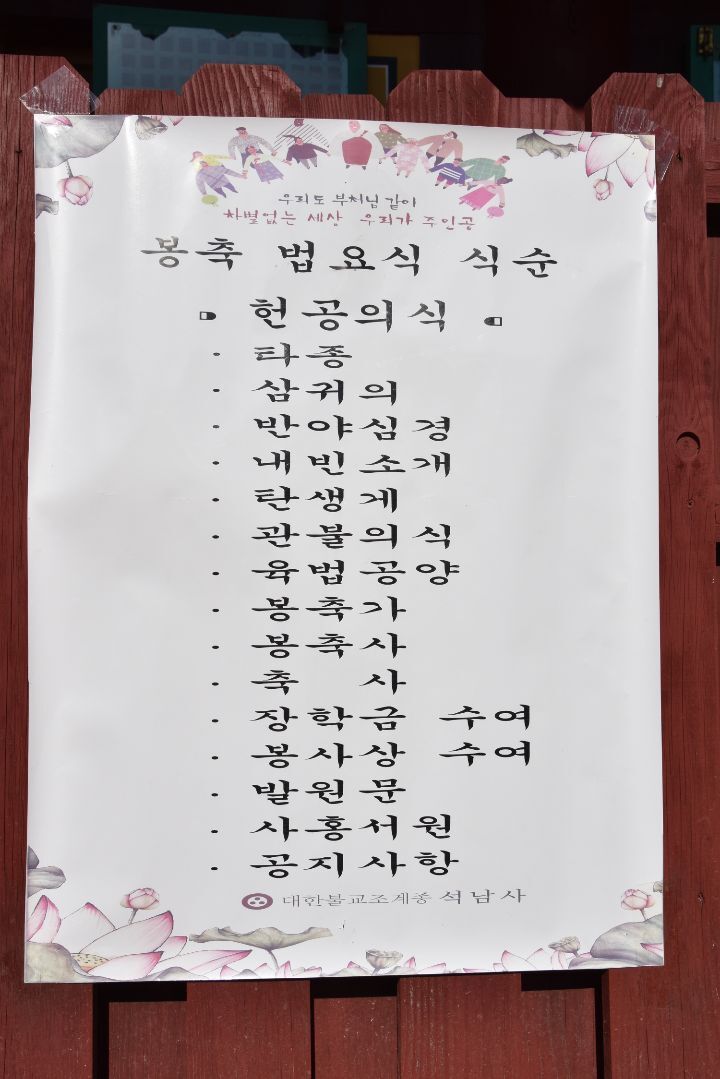 우리도 부처님 같이
차별없는 세상 우리가 주인공
봉축 법요식 식순
헌공의식
· 타종
· 삼귀의
· 반야심경
· 내빈소개
· 탄생게
· 관불의식
· 육법공양
· 봉축가
· 봉축사
· 축 사
· 장학금 수여
· 봉사상 수여
· 발원문
· 사홍서원
· 공지사항
대한불교조계종 석남사